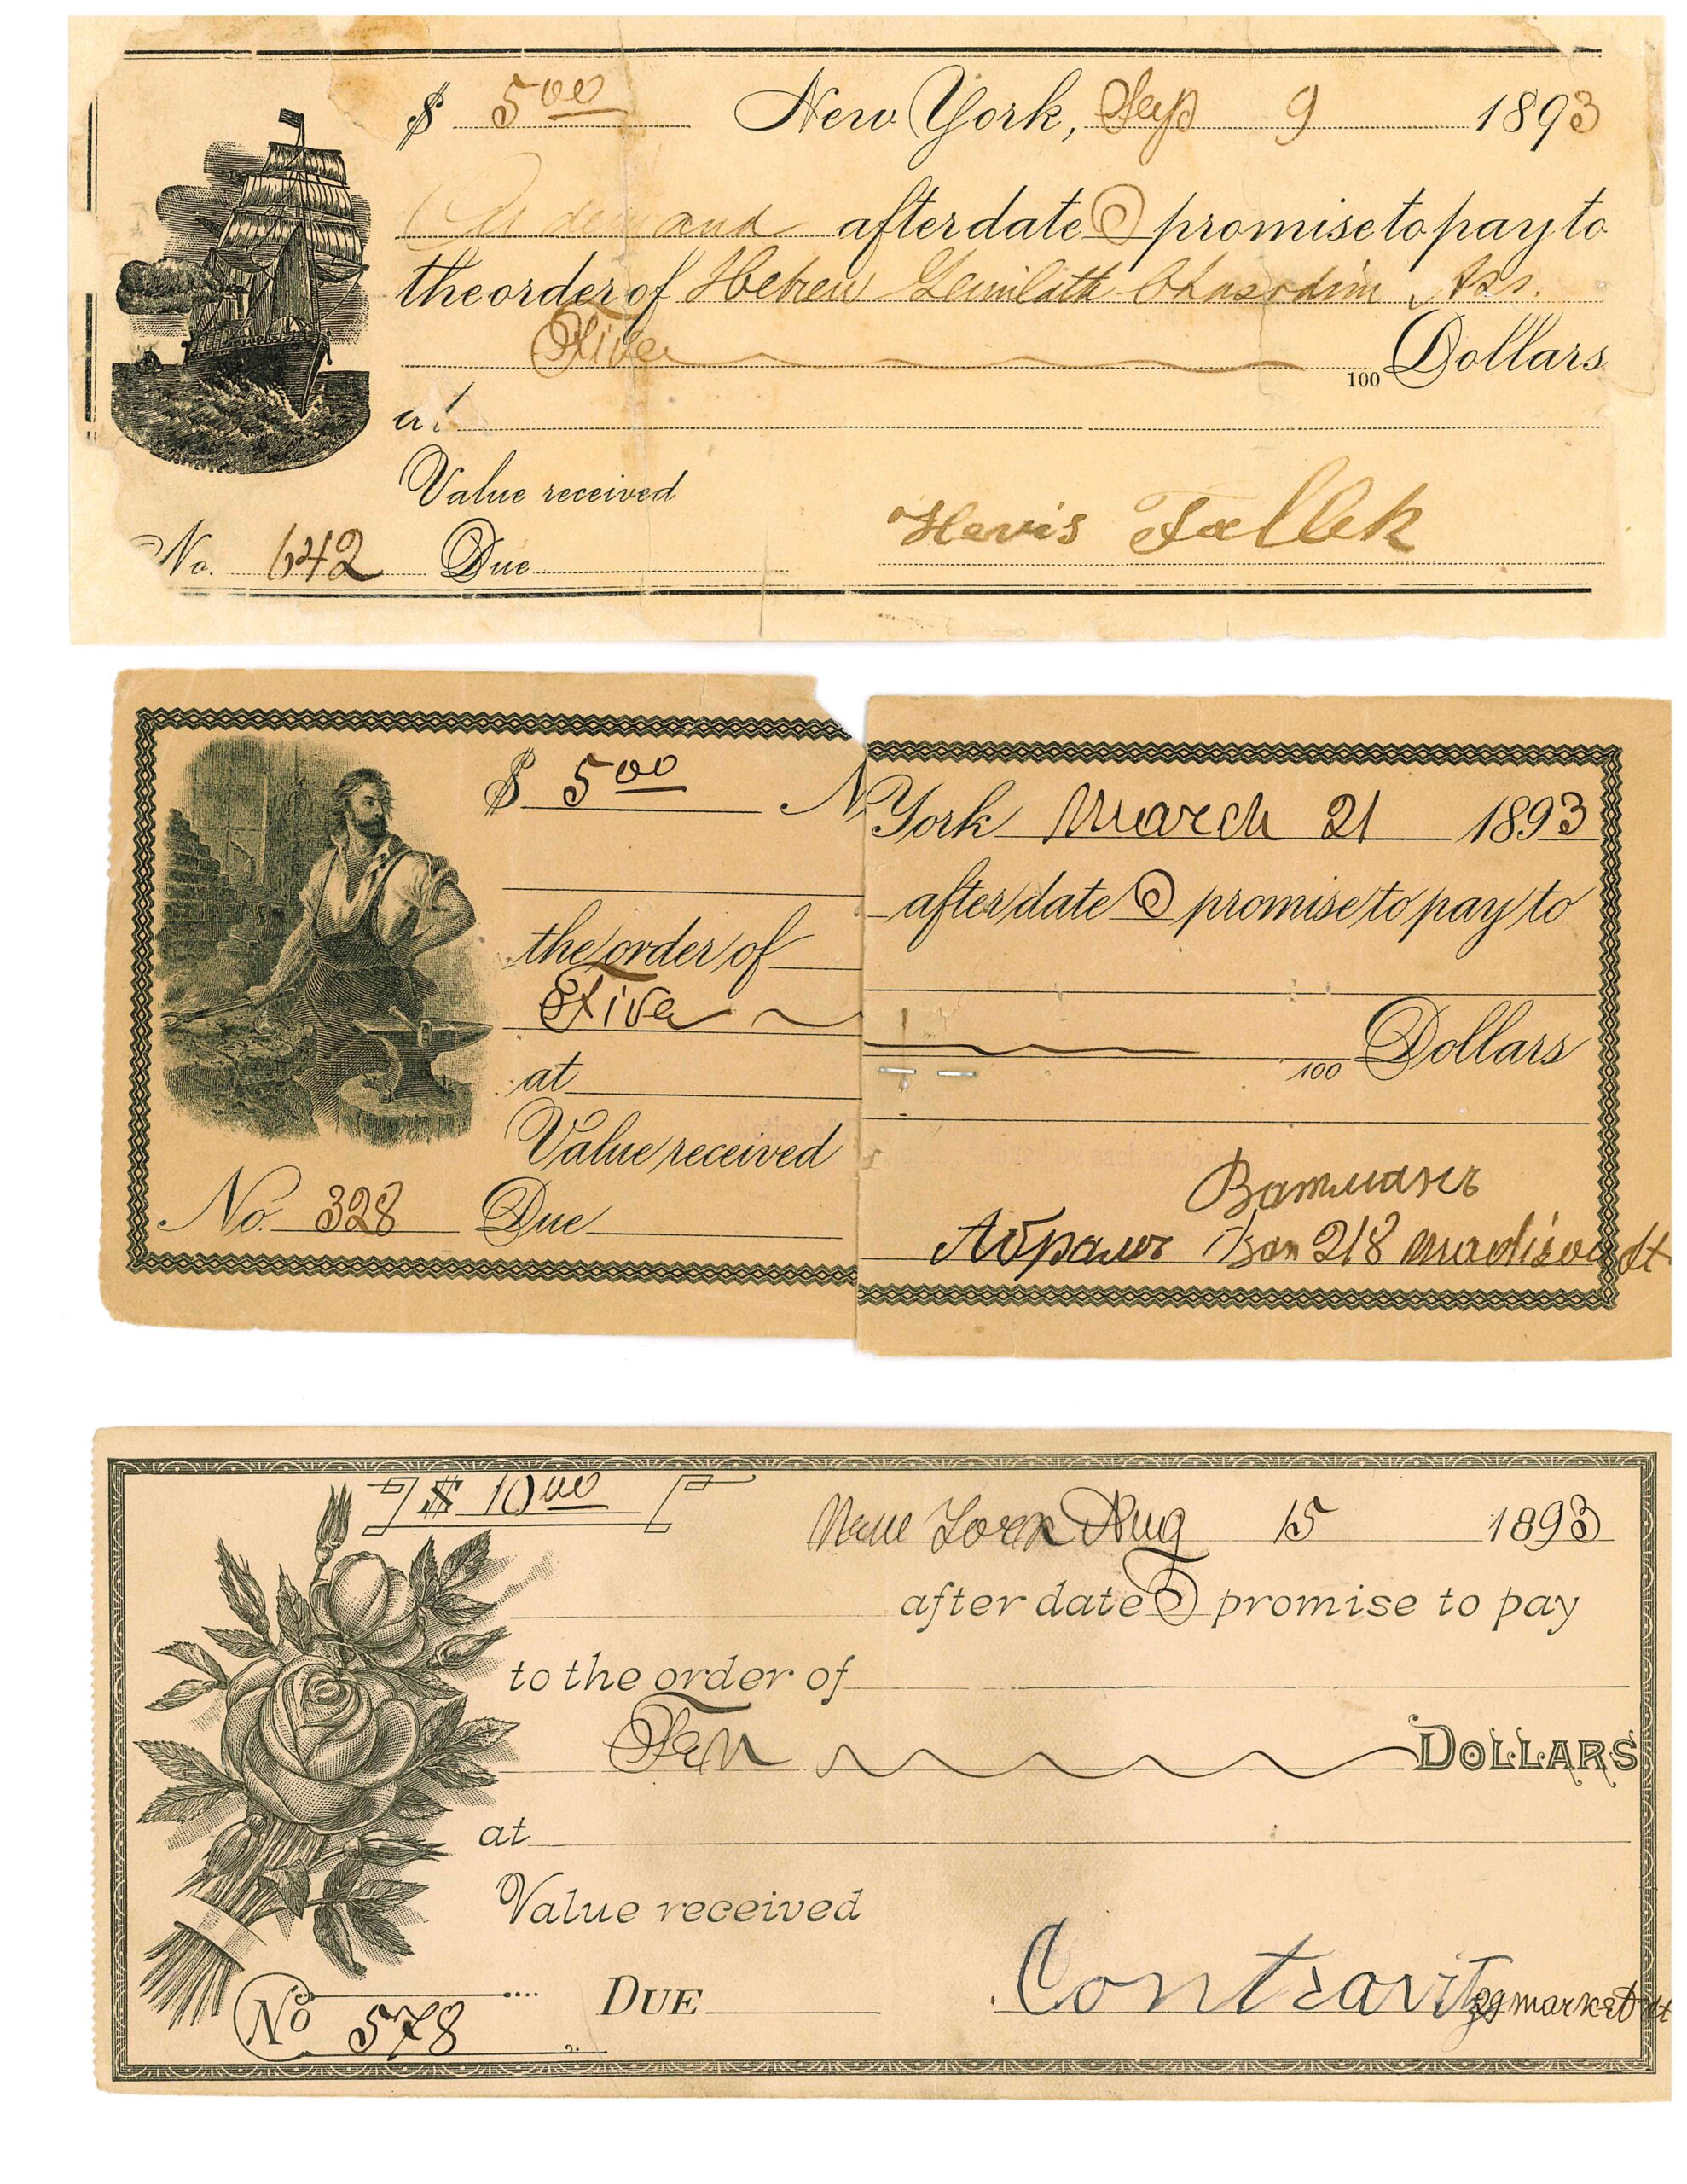 $ 5 00 New York, Sep 9 1893
On demand after date I promise to pay to
the order of Hebrew Gemilath Chasodim Ass.
Five 100 Dollars
at
Value received
Hevis Fallek
No. 642 Due
$ 5 00 N York March 21 1893
after date I promise to pay to
the order of
Five 100 Dollars
at
Value received
Ватманъ
No. 328 Due Абрамъ 218 madison st
$ 10 00 New York Aug 15 1893
after date I promise to pay
to the order of
Ten DOLLARS
at
Value received
No 578 DUE Contravitz 29 market st